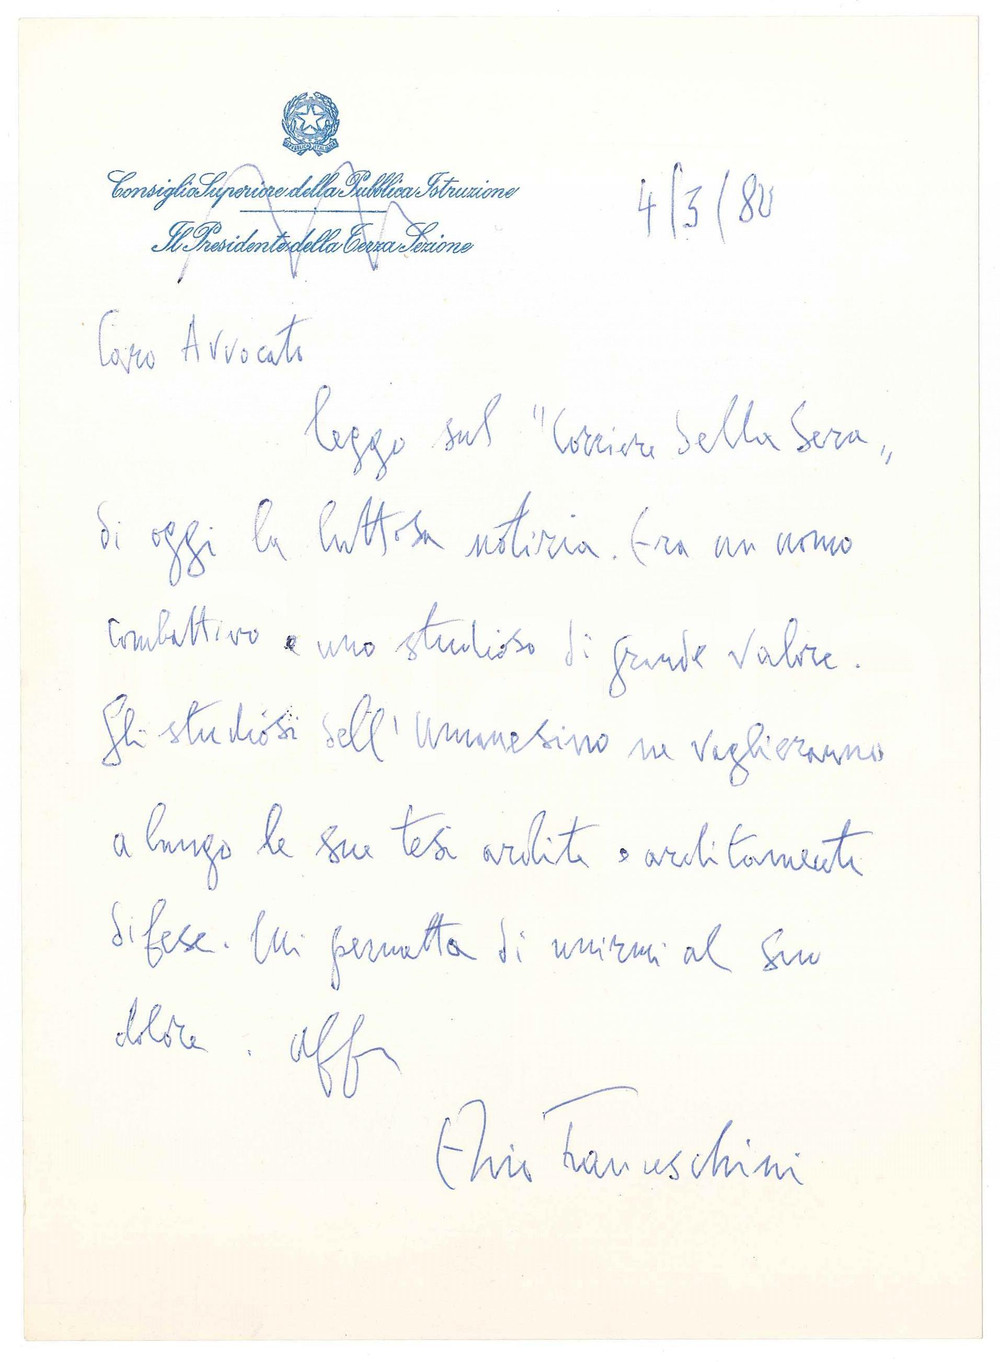 Consiglio Superiore della Pubblica Istruzione
Il Presidente della Terza Sezione
4/3/80
Caro Avvocato
leggo sul "Corriere della Sera"
di oggi la luttuosa notizia. Era un uomo
combattivo e uno studioso di grande valore.
Gli studiosi dell'Umanesimo ne vaglieranno
a lungo le sue tesi ardite e arditamente
difese. Mi permetta di unirmi al suo
dolore. aff
Ezio Franceschini